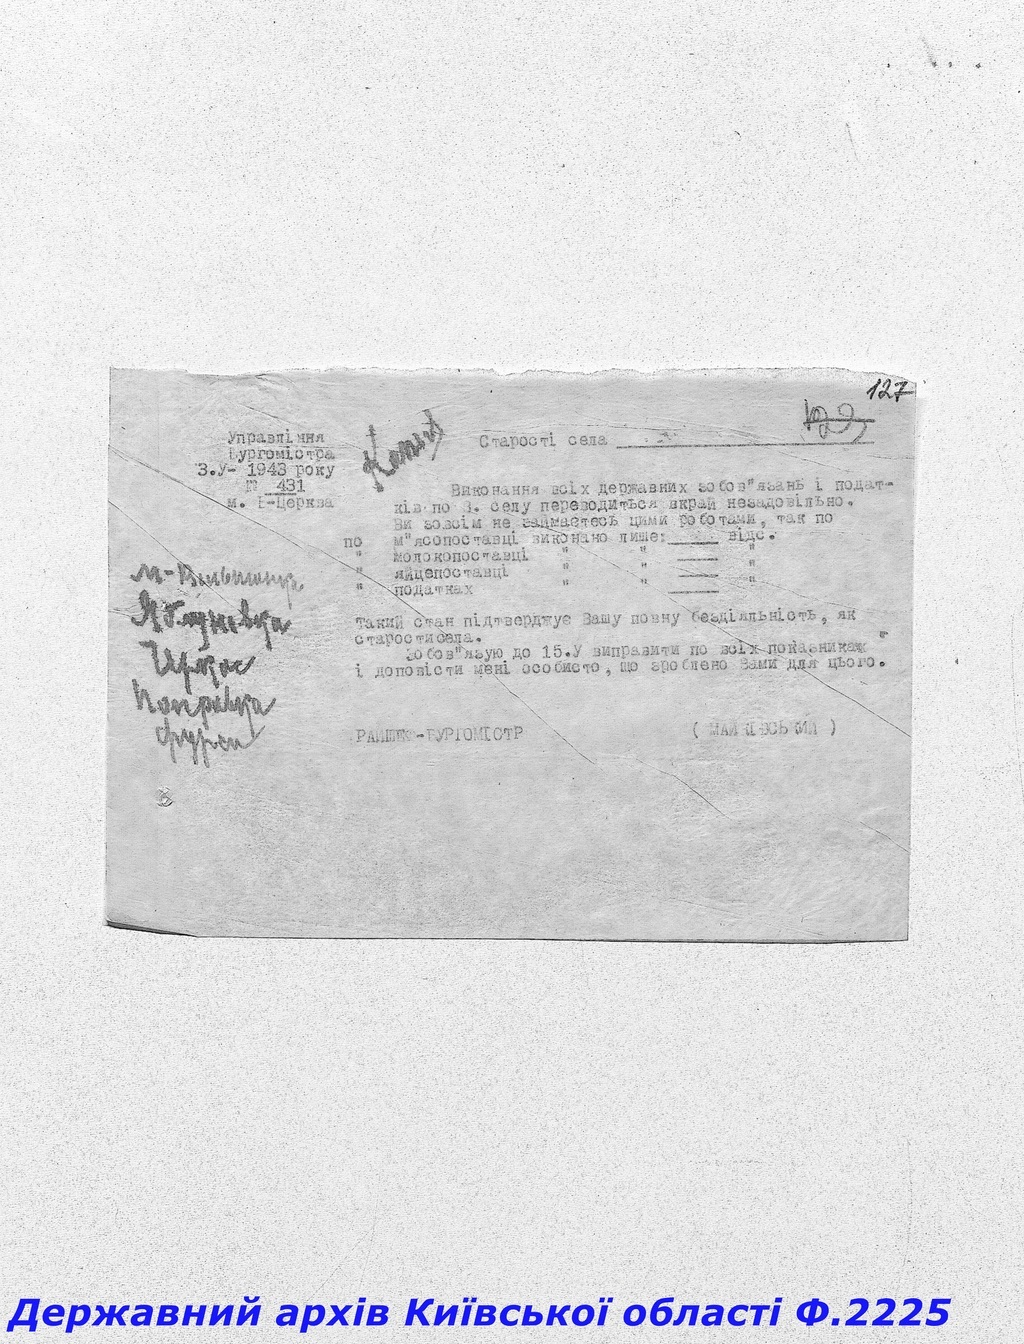 127
123
Копія
Управління
Бургомістра
3.У- 1943 року
№ 431
м. Б-Церква
Старості села
Виконання всіх державних зобов"язань і подат-
ків по В. селу переводиться вкрай незадовільно.
Ви зовсім не займаєтесь цими роботами, так по
по м"ясопоставці виконано лише: відс.
" молокопоставці " " "
" яйцепоставці " " "
" податках " "
Такий стан підтверджує Вашу повну бездіяльність, як
старости села.
Зобов"язую до 15.У виправити по всіх показниках
і доповісти мені особисто, що зроблено Вами для цього.
РАЙШЕФ-БУРГОМІСТР ( МАЙКІВСЬКИЙ )
М-Вільшанка
Яблунівка
Чупас
Поправка
Фурси
Державний архів Київської області Ф.2225